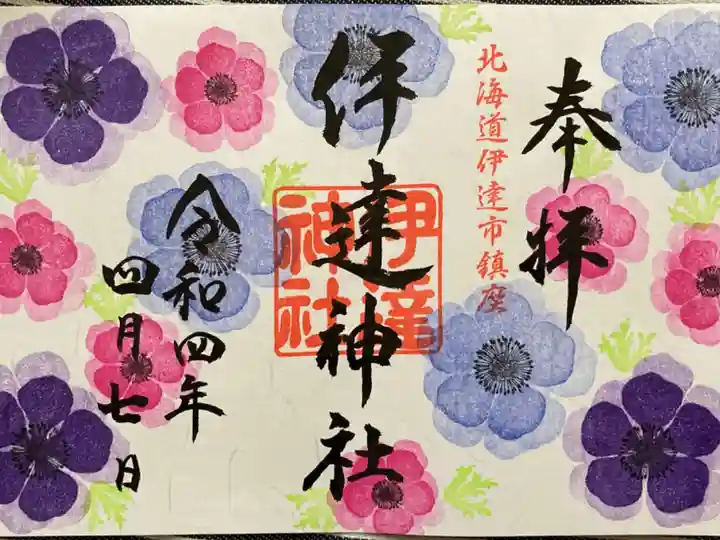 奉拝
北海道伊達市鎮座
伊達神社
伊達
神社
令和四年
四月七日